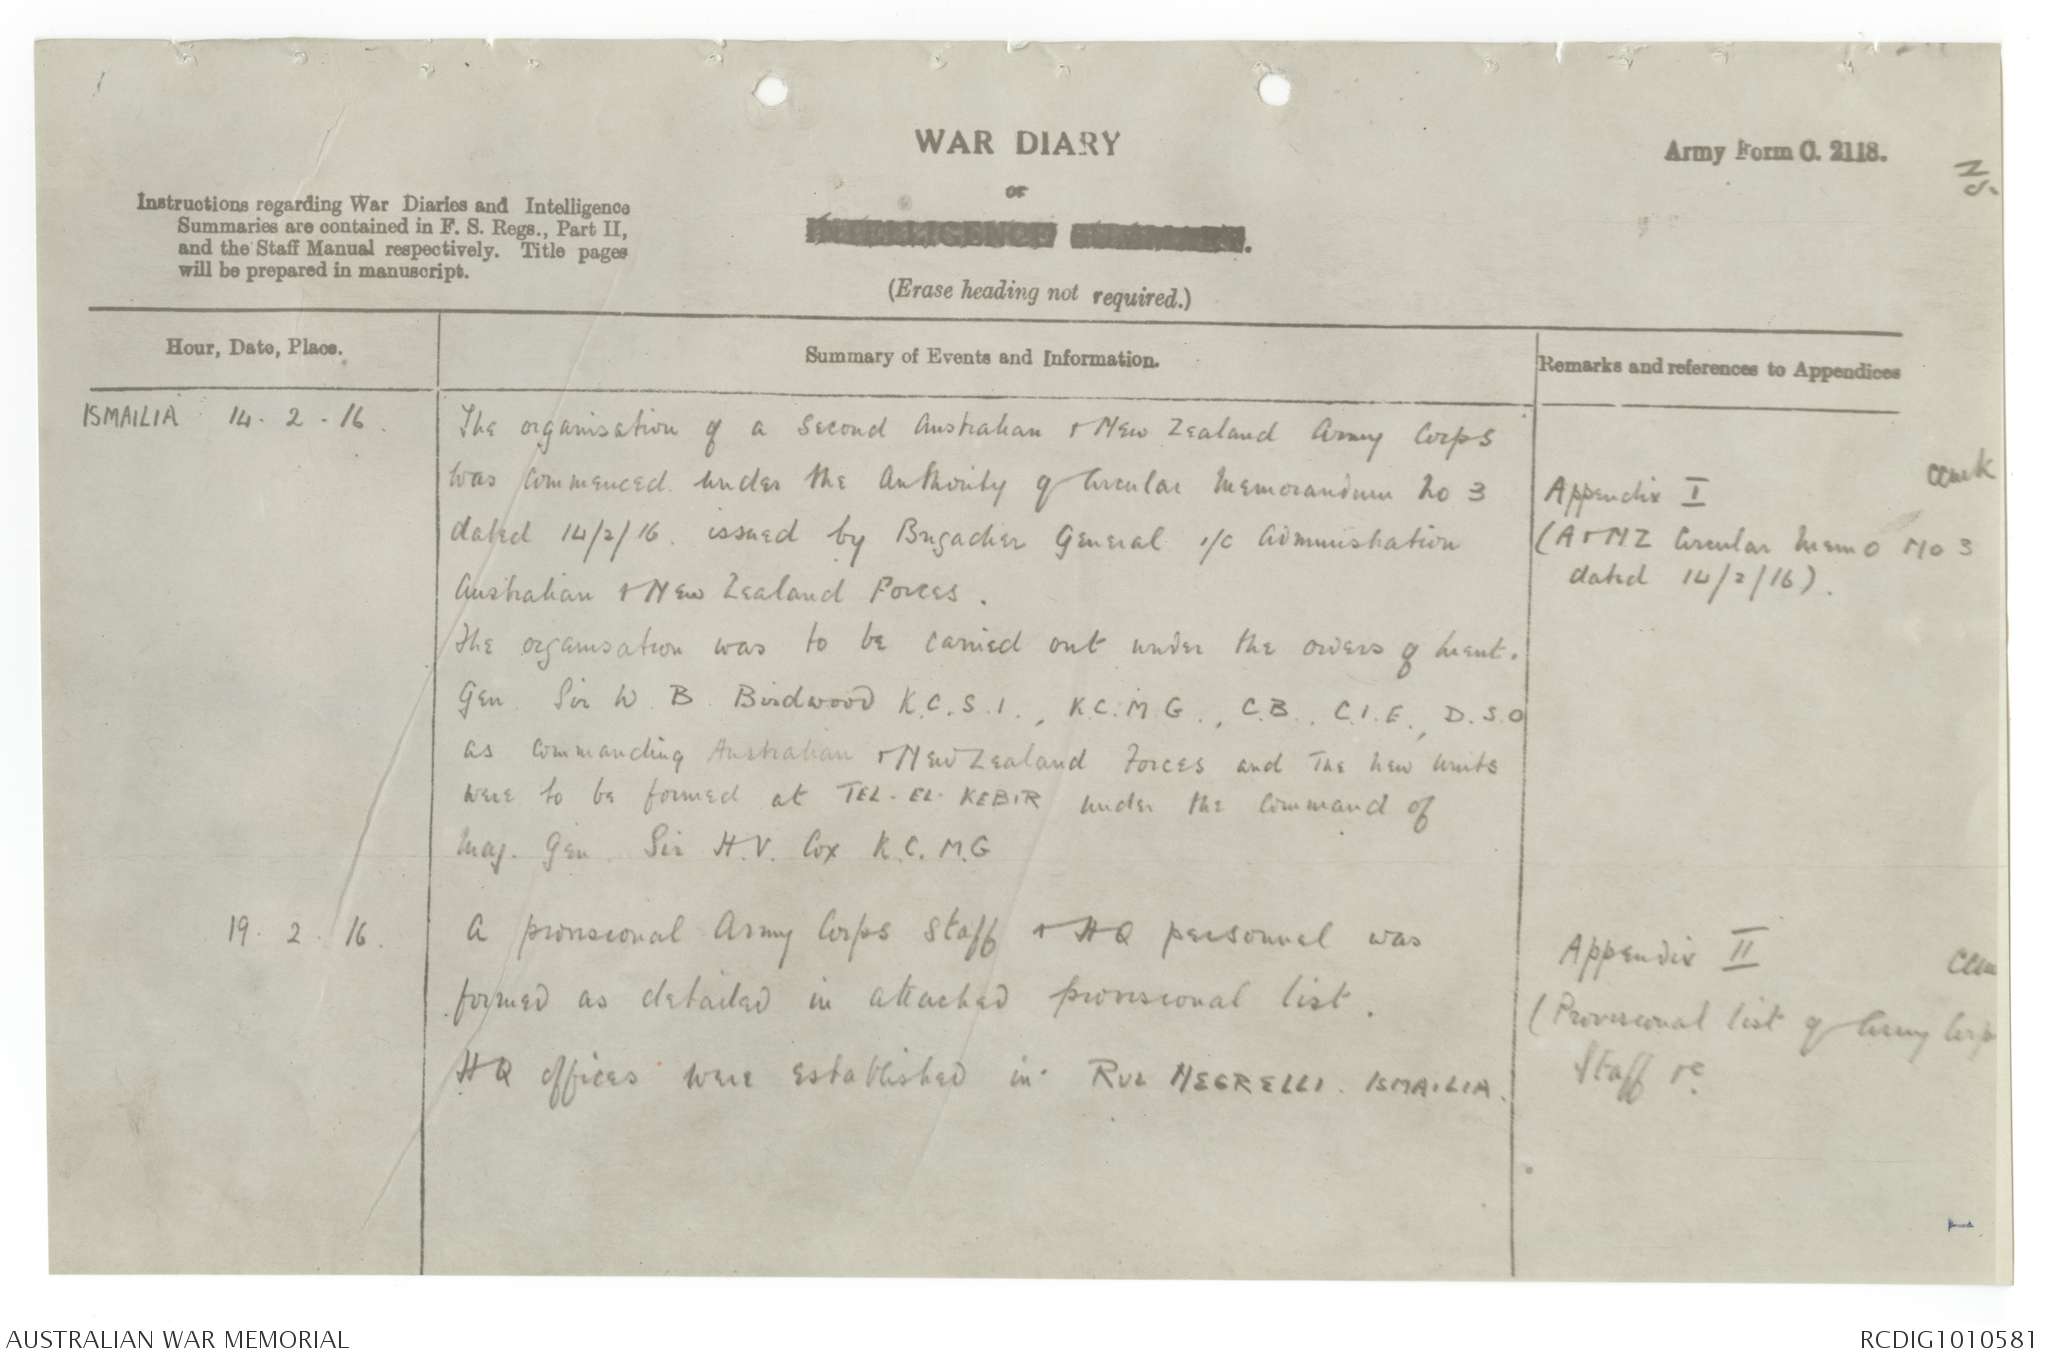 WAR DIARY
Army Form C. 2118.
or
INTELLIGENCE SUMMARY.
(Erase heading not required.)
Instructions regarding War Diaries and Intelligence
Summaries are contained in F. S. Regs., Part II,
and the Staff Manual respectively. Title pages
will be prepared in manuscript.
Hour, Date, Place.
Summary of Events and Information.
Remarks and references to Appendices
ISMAILIA 14.2.16.
The organisation of a Second Australian & New Zealand Army Corps
was commenced under the authority of Circular Memorandum No 3
dated 14/2/16. issued by Brigadier General i/c Administration
Australian & New Zealand Forces.
The organisation was to be carried out under the orders of Lieut.
Gen. Sir W. B. Birdwood K.C.S.I., K.C.M.G., C.B., C.I.E., D.S.O
as commanding Australian & New Zealand Forces and the new units
were to be formed at TEL-EL-KEBIR under the command of
Maj. Gen. Sir H.V. Cox K.C.M.G
Appendix I
(A & NZ Circular Memo No 3
dated 14/2/16).
19.2.16.
A provisional Army Corps Staff & HQ personnel was
formed as detailed in attached provisional list.
HQ offices were established in RUE NEGRELLI. ISMAILIA.
Appendix II
(Provisional list of Army Corps
Staff &c
AUSTRALIAN WAR MEMORIAL
RCDIG1010581